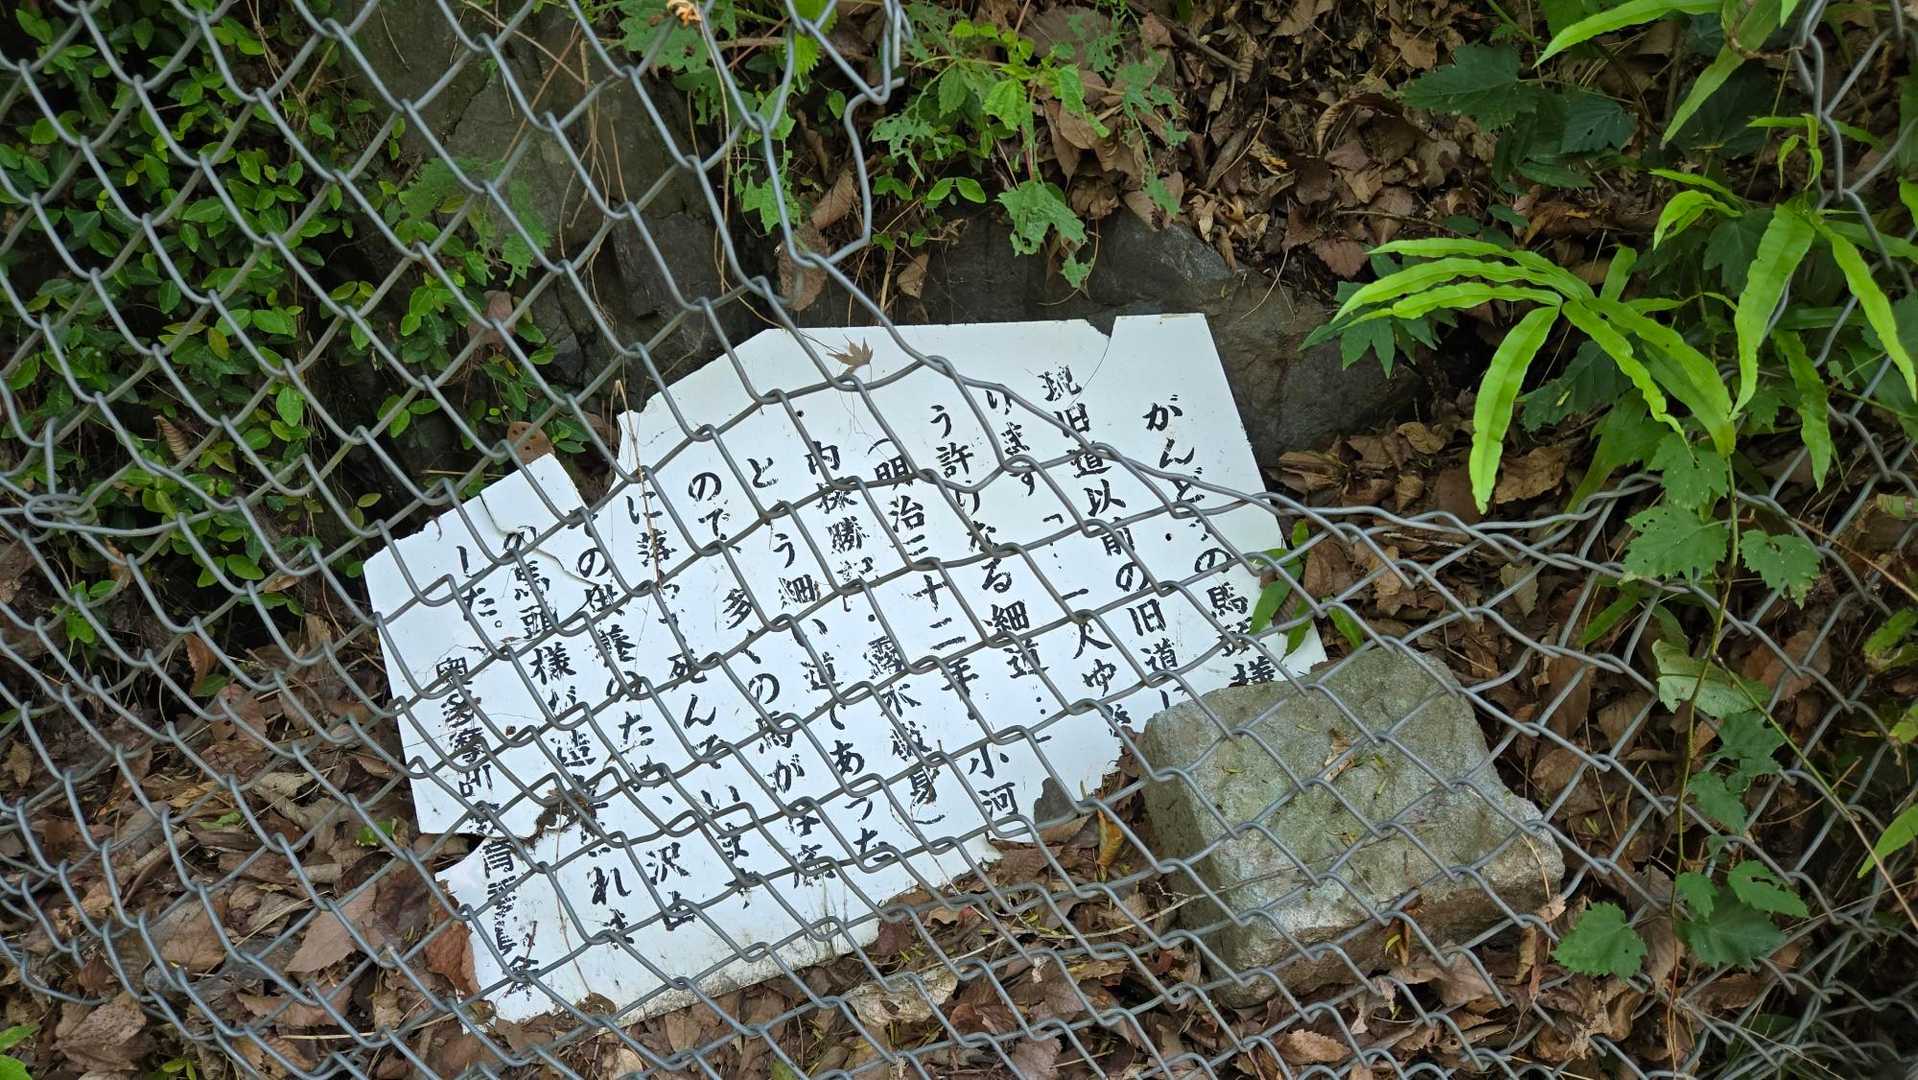 がんどうの馬頭様
現旧道以前の旧道に
ります「‥一人ゆ
う許りなる細道‥
(明治三十二年・小河
内探勝記・露水儉身)
という細い道であった
ので、多くの馬が谷底
に落ちて死んでいます
その供養のため、沢山
の馬頭様が造られま
した。
奥多摩町教育委員会